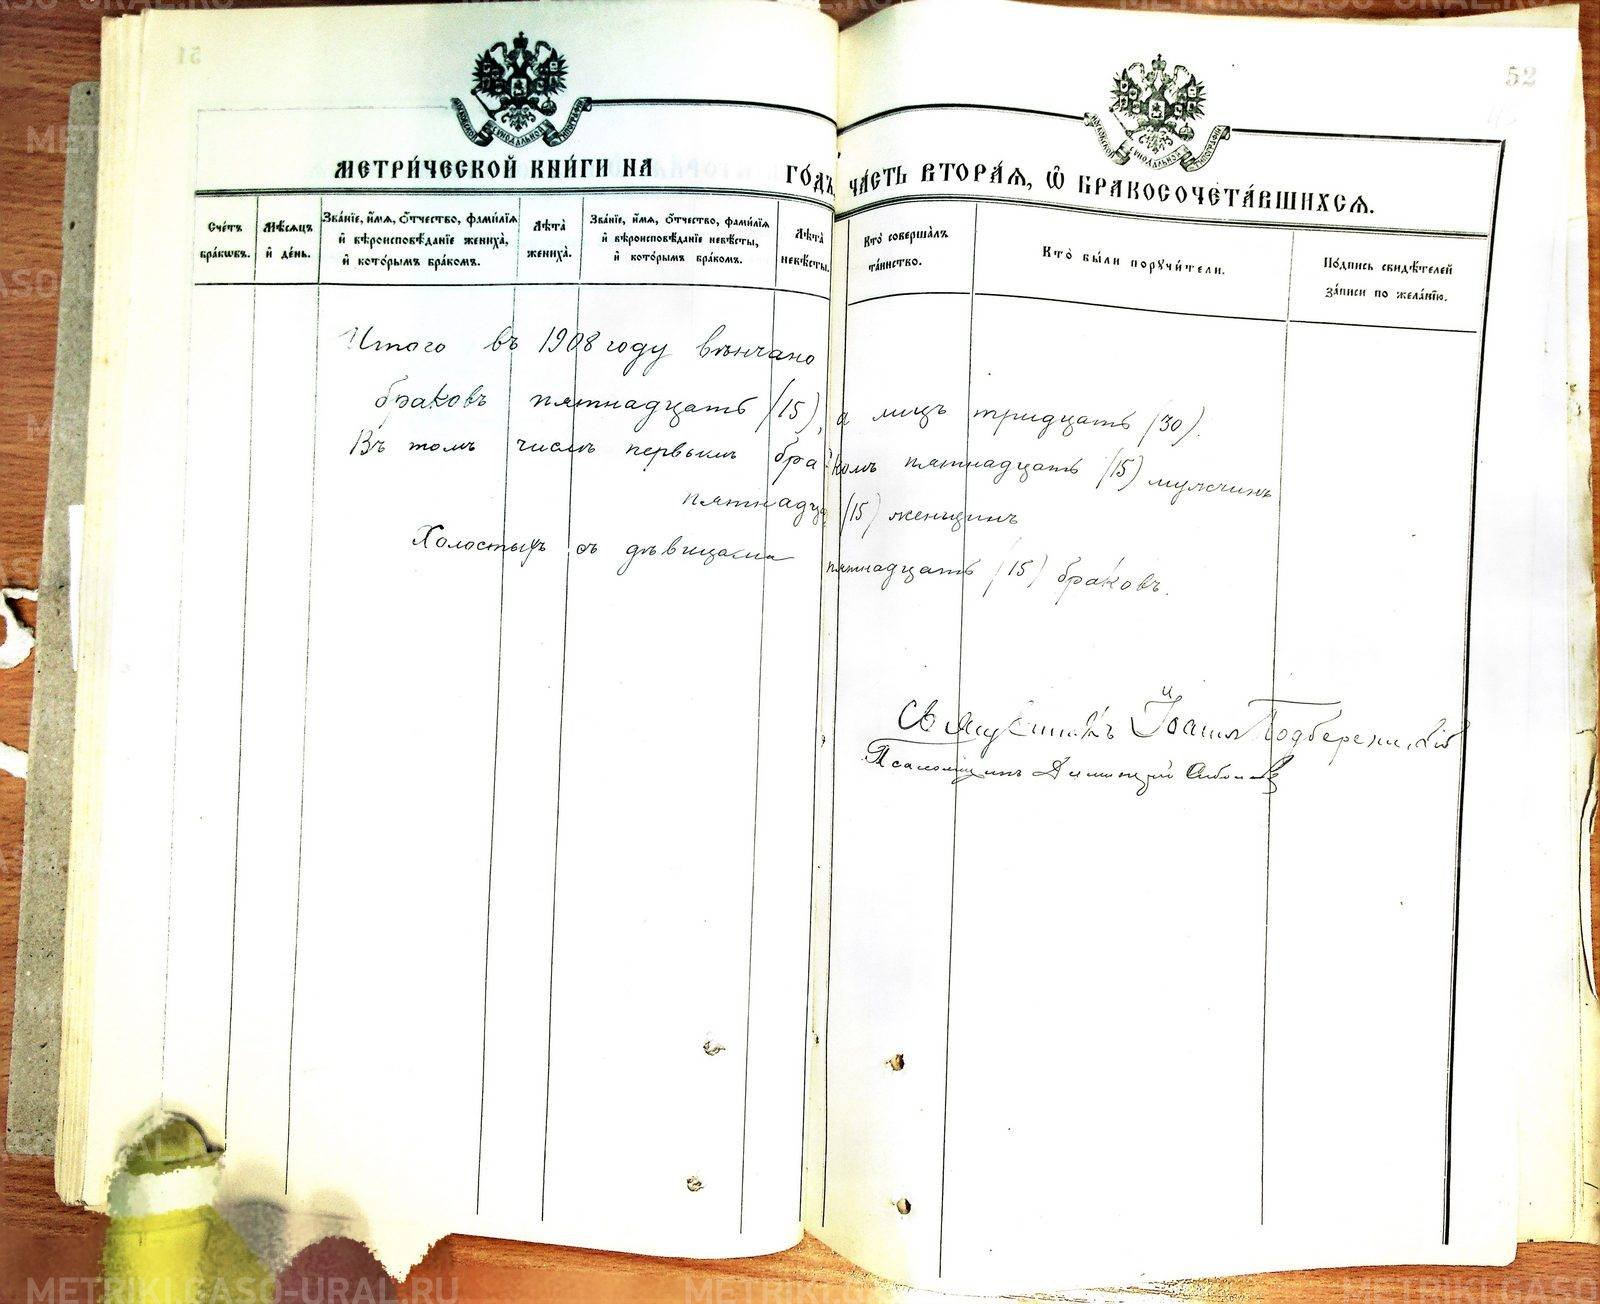 52
МЕТРИ́ЧЕСКОЙ КНИ́ГИ НА ГО́ДЪ, ЧА́СТЬ ВТОРА́Ѧ, Ѽ БРАКОСОЧЕТА́ВШИХСѦ.
Сче́тъ бра́кѡвъ.
Мѣ́сѧцъ и҆ де́нь.
Зва́нїе, и҆́мѧ, ѻ҆́тчество, фами́лїѧ и҆ вѣроисповѣ́данїе жениха̀, и҆ кото́рымъ бра́комъ.
Лѣ́та жениха̀.
Зва́нїе, и҆́мѧ, ѻ҆́тчество, фами́лїѧ и҆ вѣроисповѣ́данїе невѣ́сты, и҆ кото́рымъ бра́комъ.
Лѣ́та невѣ́сты.
Кто̀ соверша́лъ та́инство.
Кто̀ бы́ли порꙋчи́тели.
По́дпись свидѣ́телей за́писи по жела́нїю.
Итого въ 1908 году вѣнчано
браковъ пятнадцать (15), а лицъ тридцать (30).
Въ томъ числѣ первымъ бракомъ пятнадцать (15) мужчинъ
пятнадца (15) женщинъ
Холостыхъ съ дѣвицами пятнадцать (15) браковъ.
Священникъ Іоаннъ
Псаломщикъ Димитрій
МОСКОВСКОЙ СѴНОДАЛЬНОЙ ТИПОГРАФІИ
МОСКОВСКОЙ СѴНОДАЛЬНОЙ ТИПОГРАФІИ
METRIKI.GASO-URAL.RU